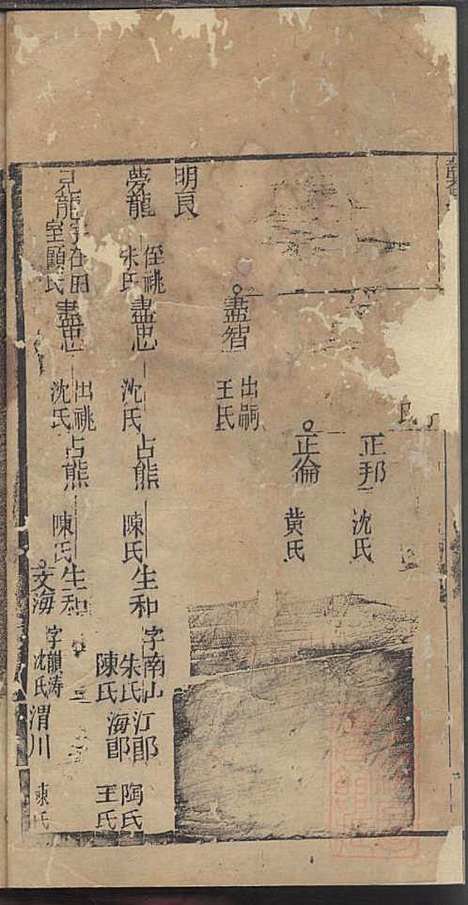 正邦 沈氏
正倫 黄氏
盡智 出嗣 王氏
明良
夢龍 侄祧 朱氏 盡忠 沈氏 占熊 陳氏 生和 字南山 朱氏 陳氏 江郎 陶氏 海郎 王氏
見龍 字在田 室顧氏 盡忠 出祧 沈氏 占熊 陳氏 生和
文海 字韻涛 沈氏 渭川 陳氏